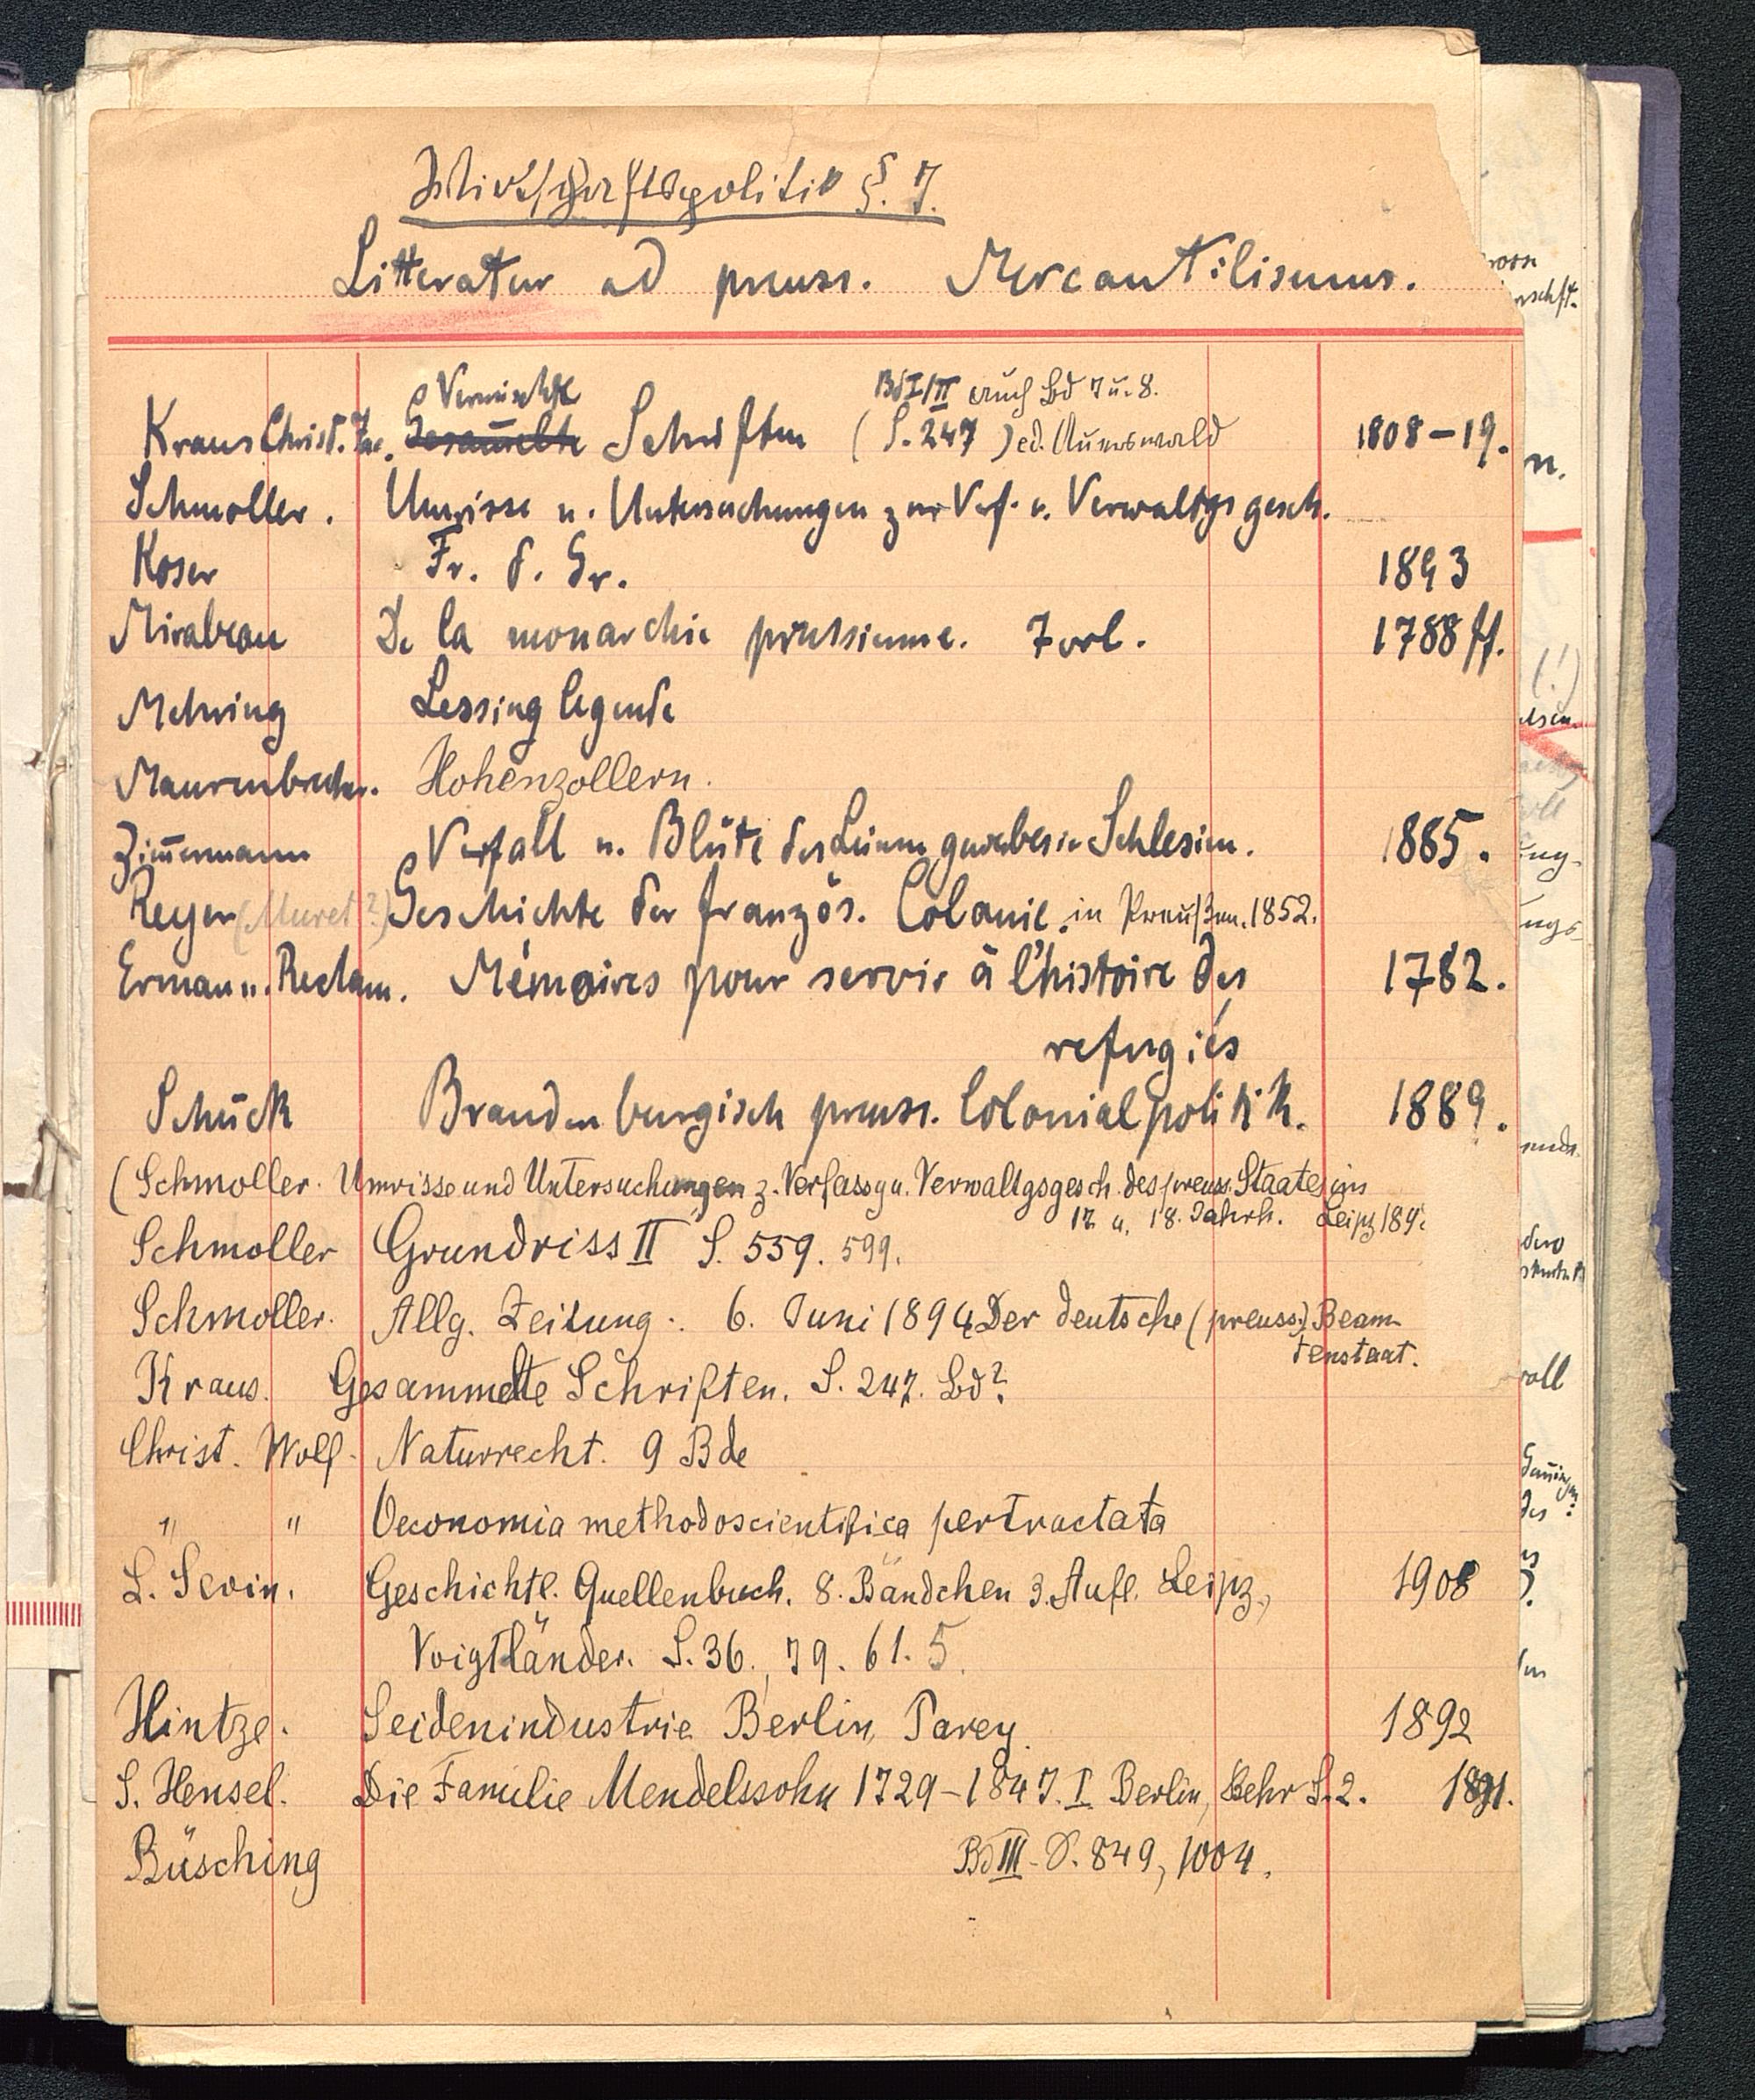 Wirtschaftspolitik §. 7.
Litteratur ad preuss. Mercantilismus.
Vermischte Bd I/II auch Bd 7 u. 8.
Kraus Christ. Jac. Gesam̄elte Schriften (S. 247) ed. Auerswald 1808-19.
Schmoller. Umrisse u. Untersuchungen zur Verf. u. Verwaltgs gesch.
Koser Fr. d. Gr. 1893
Mirabeau De la monarchie prussienne. 7 vol. 1788 ff.
Mehring Lessing legende
Maurenbrecher. Hohenzollern.
Zim̄ermann Verfall u. Blüte des Leinengewerbes in Schlesien. 1885.
Reyer (Muret?) Geschichte der französ. Colonie. in Preußen. 1852.
Erman u. Reclam. Mémoires pour servir à l'histoire des 1782.
refugiés
Schück Brandenburgisch preuss. Colonialpolitik. 1889.
(Schmoller. Umrisse und Untersuchungen z. Verfassg u. Verwaltgsgesch. des preuss. Staates im
17 u. 18. Jahrh. Leipz 189
Schmoller Grundriss II S. 559. 599.
Schmoller. Allg. Zeitung. 6. Juni 1894 Der deutsche (preuss.) Beam
tenstaat.
Kraus. Gesammelte Schriften. S. 247. Bd?
Christ. Wolf. Naturrecht. 9 Bde
" " Oeconomia methodo scientifica pertractata
L. Sevin. Geschichtl. Quellenbuch. 8. Bändchen 3. Aufl. Leipz., 1908
Voigtländer. S. 36., 79. 61. 5.
Hintze. Seidenindustrie Berlin, Parey. 1892
S. Hensel. Die Familie Mendelssohn 1729-1847. I Berlin, Behr S. 2. 1891.
Büsching Bd III. S. 849, 1004.